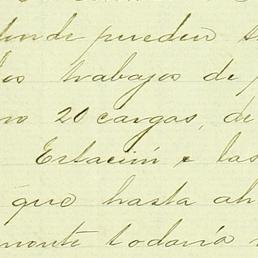 donde pueden
los trabajos de
no 20 cargas, de
Estación e las
que hasta ah
mente todavía